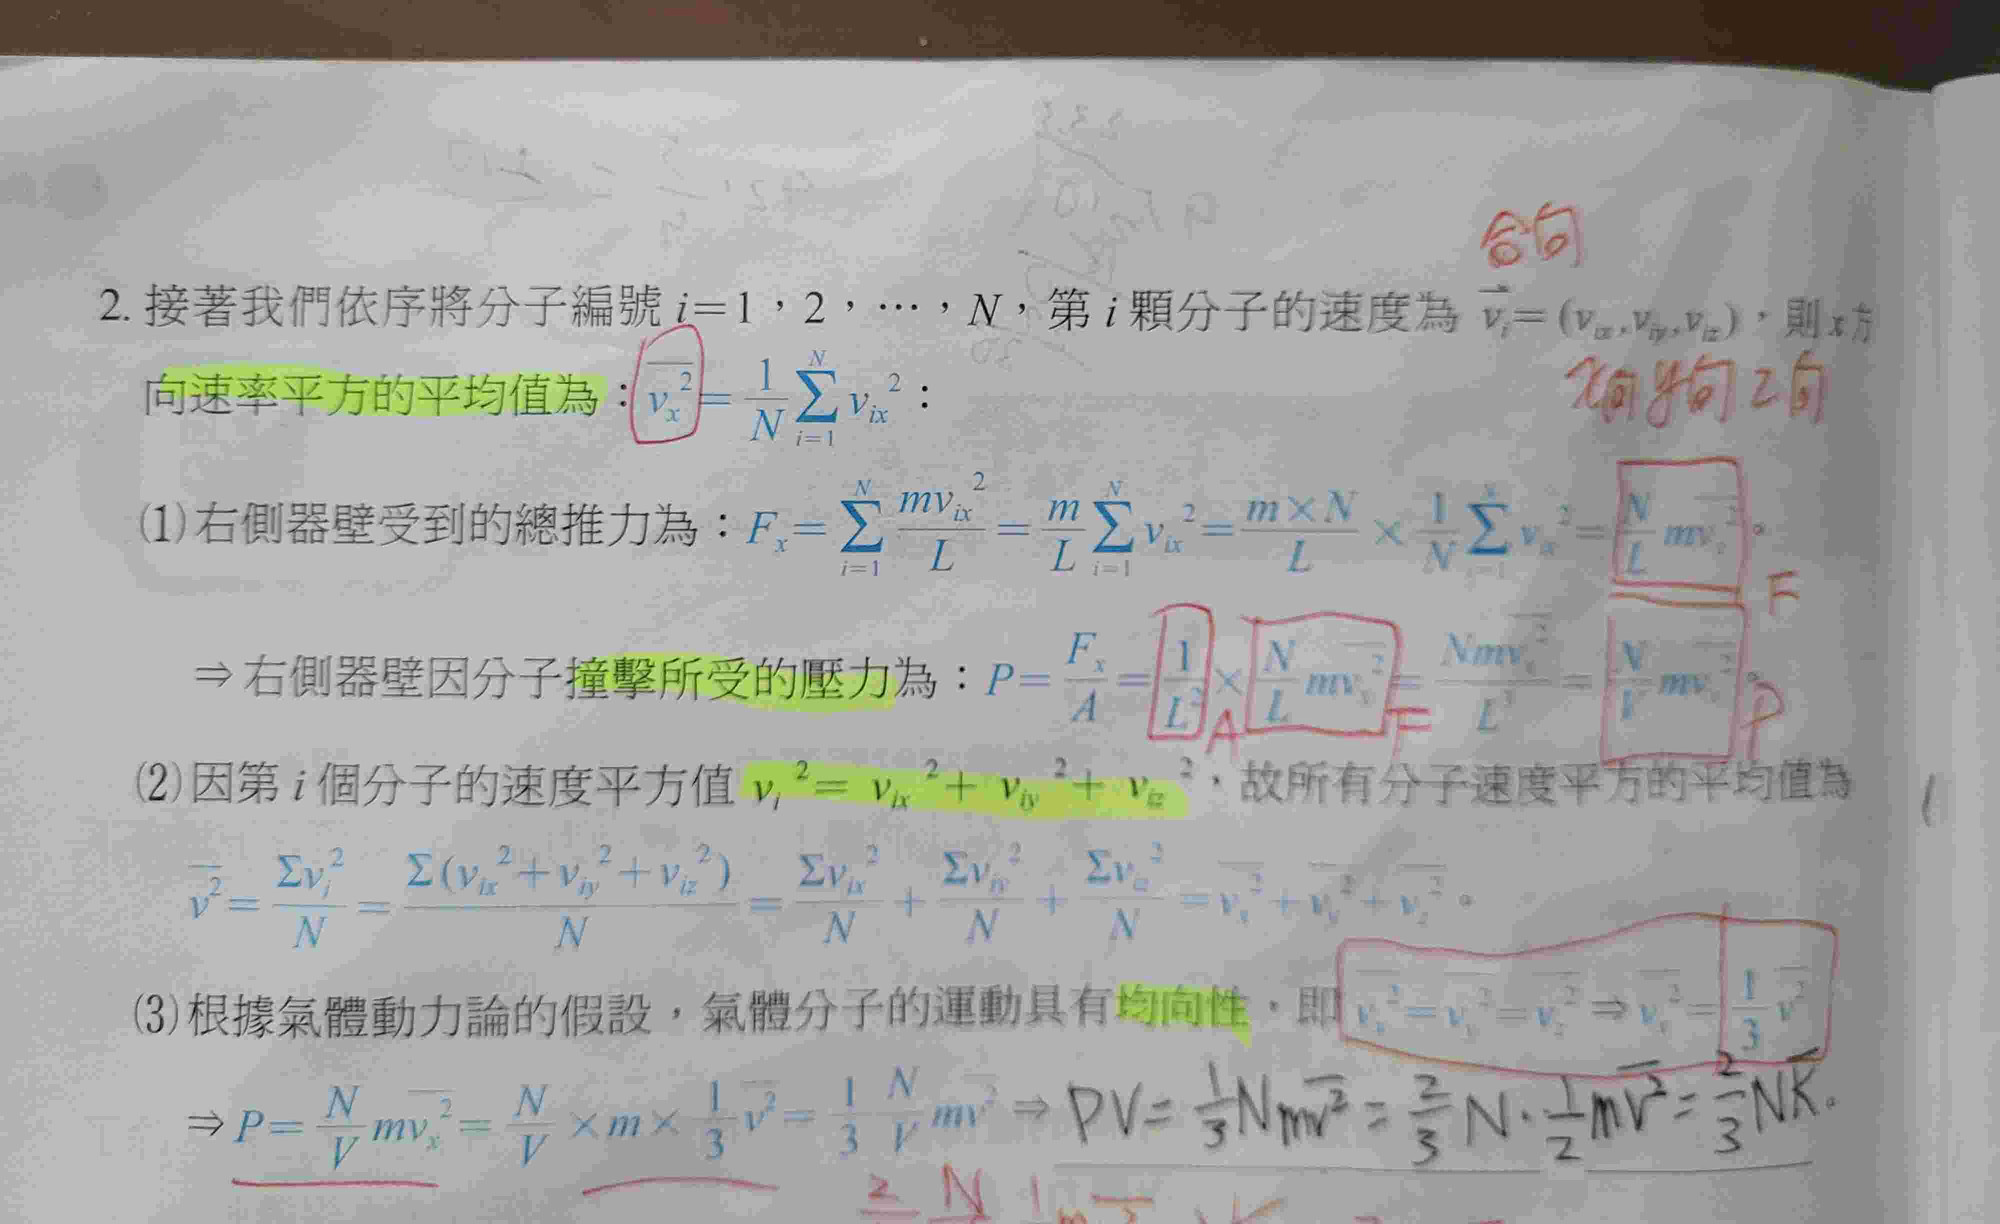 合向
2. 接著我們依序將分子編號 i=1，2，…，N，第 i 顆分子的速度為 v⃗ᵢ=(vᵢₓ,vᵢᵧ,v_iz)，則 x 方
向速率平方的平均值為：\overline{v_x^2} = \frac{1}{N}\sum_{i=1}^{N} v_{ix}^2：
x向 y向 z向
(1) 右側器壁受到的總推力為：F_x = \sum_{i=1}^{N} \frac{mv_{ix}^2}{L} = \frac{m}{L}\sum_{i=1}^{N} v_{ix}^2 = \frac{m×N}{L} × \frac{1}{N}\sum_{i=1}^{N} v_{ix}^2 = \frac{N}{L} m\overline{v_x^2}。
F
⇒ 右側器壁因分子撞擊所受的壓力為：P = \frac{F_x}{A} = \frac{1}{L^2} × \frac{N}{L} m\overline{v_x^2} = \frac{Nm\overline{v_x^2}}{L^3} = \frac{N}{V} m\overline{v_x^2}。
A F P
(2) 因第 i 個分子的速度平方值 v_i^2 = v_{ix}^2 + v_{iy}^2 + v_{iz}^2，故所有分子速度平方的平均值為
\overline{v^2} = \frac{Σv_i^2}{N} = \frac{Σ(v_{ix}^2 + v_{iy}^2 + v_{iz}^2)}{N} = \frac{Σv_{ix}^2}{N} + \frac{Σv_{iy}^2}{N} + \frac{Σv_{iz}^2}{N} = \overline{v_x^2} + \overline{v_y^2} + \overline{v_z^2}。
(3) 根據氣體動力論的假設，氣體分子的運動具有均向性，即 \overline{v_x^2} = \overline{v_y^2} = \overline{v_z^2} ⇒ \overline{v_x^2} = \frac{1}{3}\overline{v^2}
⇒ P = \frac{N}{V} m\overline{v_x^2} = \frac{N}{V} × m × \frac{1}{3}\overline{v^2} = \frac{1}{3}\frac{N}{V} m\overline{v^2} ⇒ PV = \frac{1}{3}Nm\overline{v^2} = \frac{2}{3}N·\frac{1}{2}m\overline{v^2} = \frac{2}{3}N\overline{K}.